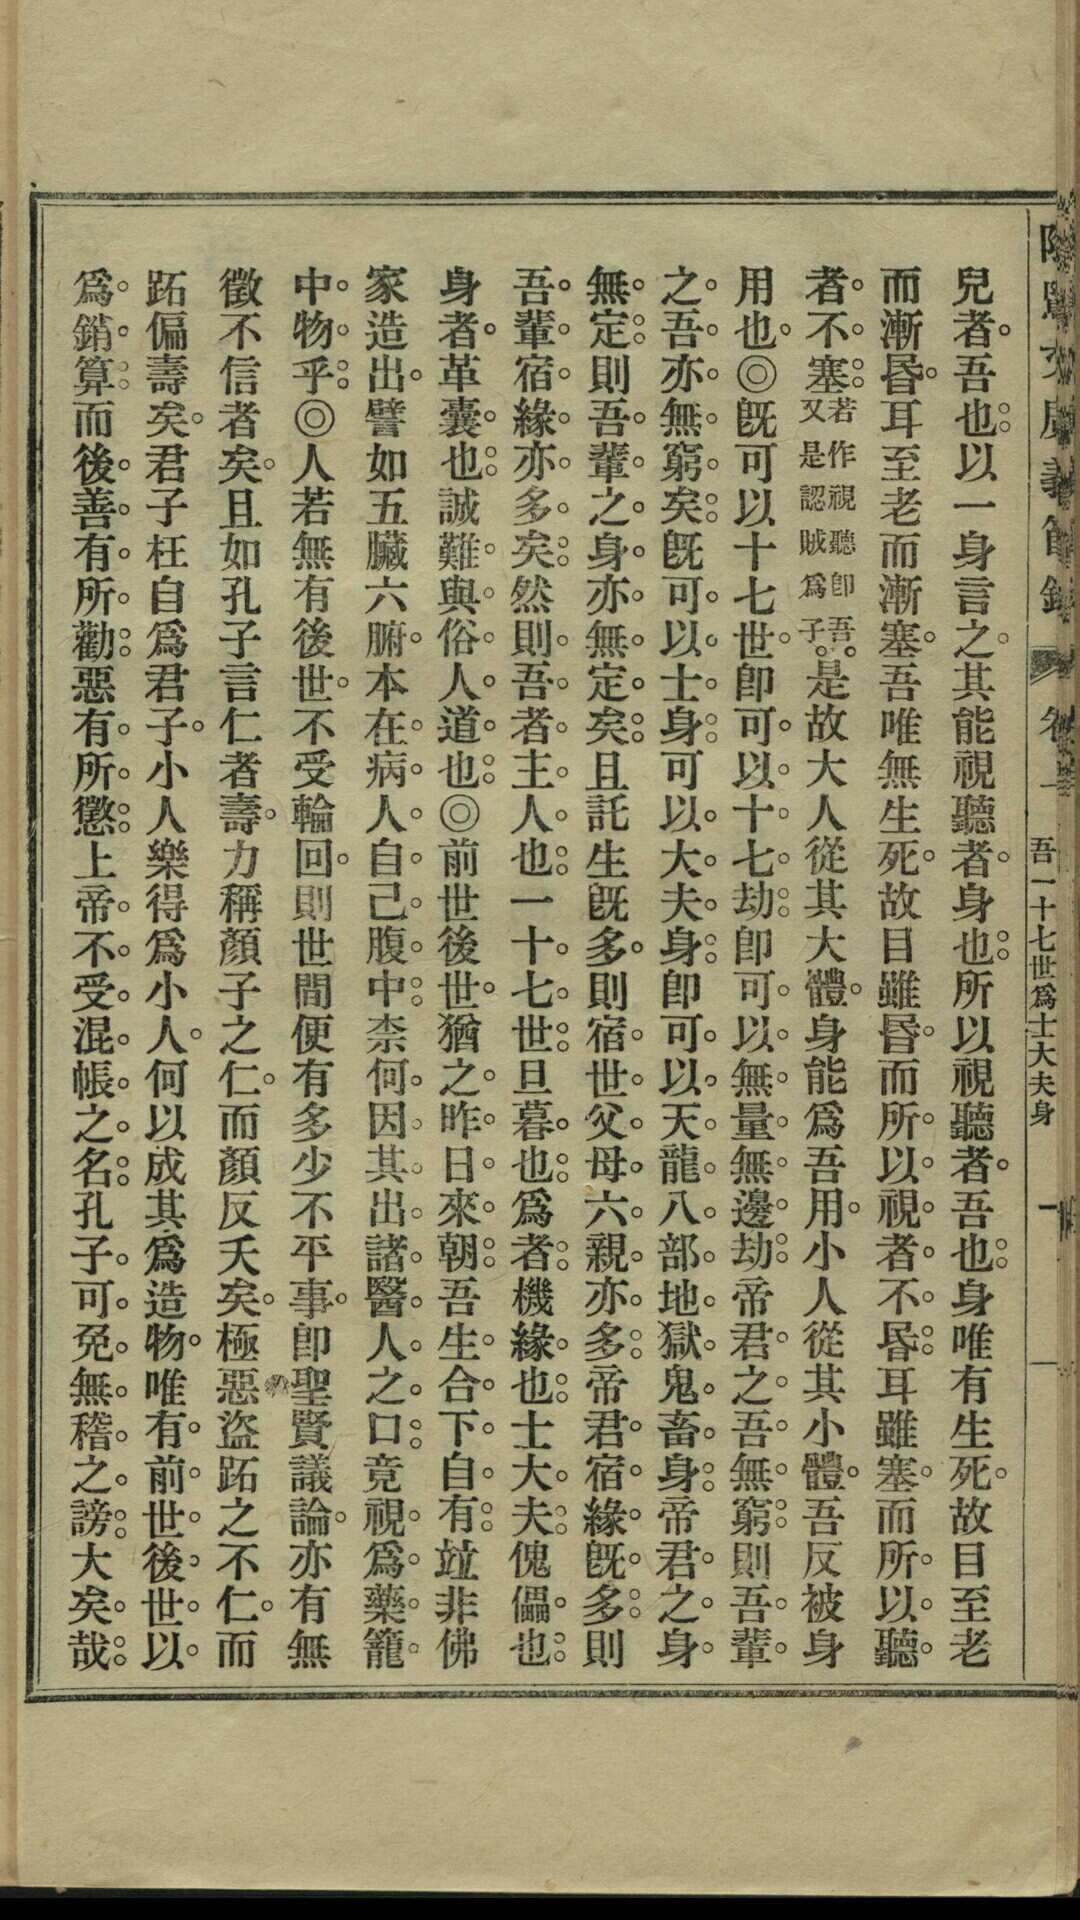 陰騭文廣義節錄 卷一 吾一十七世爲士大夫身 一
兒者。吾也。以一身言之。其能視聽者。身也。所以視聽者。吾也。身唯有生死。故目至老
而漸昏。耳至老而漸塞。吾唯無生死。故目雖昏。而所以視者不昏。耳雖塞。而所以聽
者不塞。若作視聽卽吾。又是認賊爲子。是故大人從其大體。身能爲吾用。小人從其小體。吾反被身
用也。◎旣可以十七世。卽可以十七劫。卽可以無量無邊劫。帝君之吾無窮。則吾輩
之吾亦無窮矣。旣可以士身。可以大夫身。卽可以天龍八部地獄鬼畜身。帝君之身
無定。則吾輩之身亦無定矣。且託生旣多。則宿世父母六親亦多。帝君宿緣旣多。則
吾輩宿緣亦多矣。然則吾者。主人也。一十七世。旦暮也。爲者。機緣也。士大夫。傀儡也。
身者。革囊也。誠難與俗人道也。◎前世後世。猶之昨日來朝。吾生合下自有。竝非佛
家造出。譬如五臟六腑。本在病人自己腹中。柰何因其出諸醫人之口。竟視爲藥籠
中物乎。◎人若無有後世。不受輪回。則世間便有多少不平事。卽聖賢議論。亦有無
徵不信者矣。且如孔子言仁者壽。力稱顏子之仁。而顏反夭矣。極惡盜跖之不仁。而
跖偏壽矣。君子枉自爲君子。小人樂得爲小人。何以成其爲造物。唯有前世後世以
爲銷算。而後善有所勸。惡有所懲。上帝不受混帳之名。孔子可免無稽之謗。大矣哉。